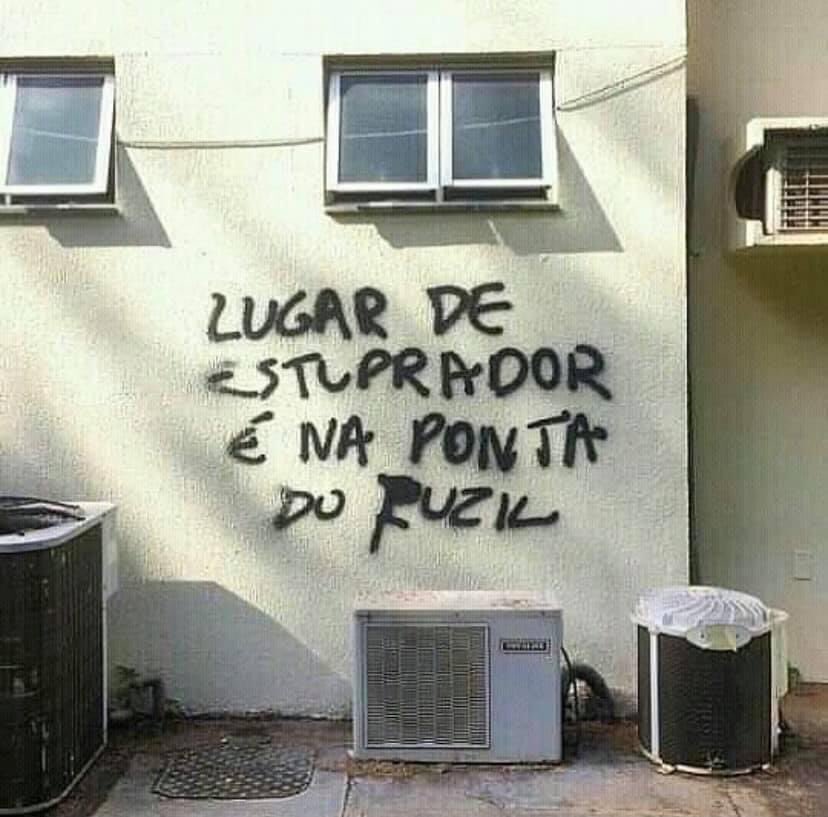 LUGAR DE
ESTUPRADOR
É NA PONTA
DO FUZIL